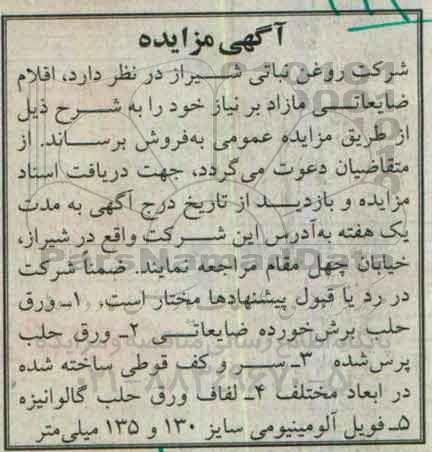 آگهی مزایده
شرکت روغن نباتی شیراز در نظر دارد، اقلام
ضایعاتی مازاد بر نیاز خود را به شرح ذیل
از طریق مزایده عمومی به‌فروش برساند. از
متقاضیان دعوت می‌گردد، جهت دریافت اسناد
مزایده و بازدید از تاریخ درج آگهی به مدت
یک هفته به‌آدرس این شرکت واقع در شیراز،
خیابان چهل مقام مراجعه نمایند. ضمنا شرکت
در رد یا قبول پیشنهادها مختار است. ۱ـ ورق
حلب برش‌خورده ضایعاتی ۲ـ ورق حلب
پرس‌شده ۳ـ سر و کف قوطی ساخته شده
در ابعاد مختلف ۴ـ لفاف ورق حلب گالوانیزه
۵ـ فویل آلومینیومی سایز ۱۳۰ و ۱۳۵ میلی‌متر
ParsNamadData